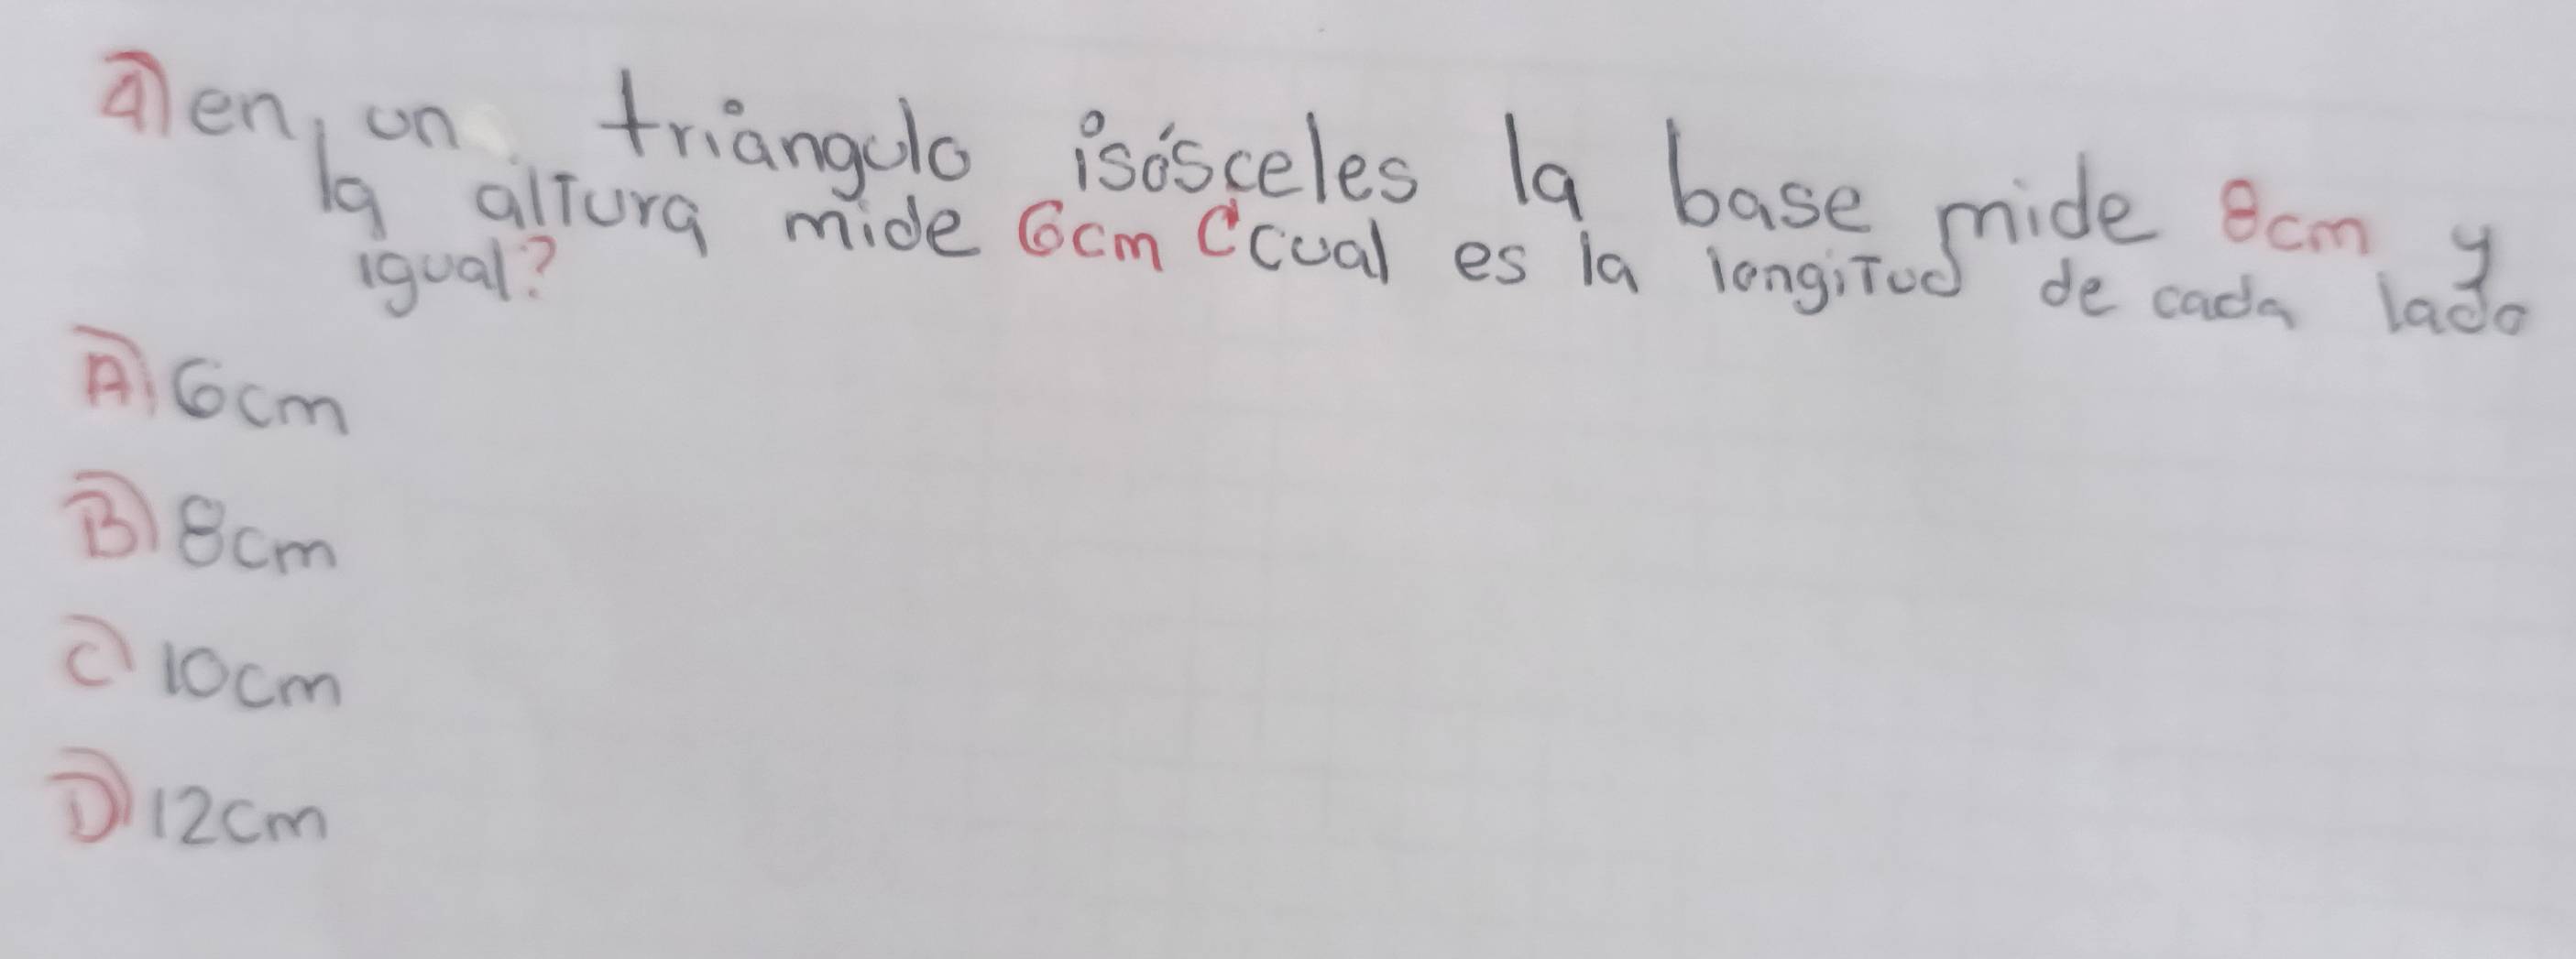 4) en un triángulo isósceles la base mide 8cm y
la altura mide 6cm ¿cual es la longitud de cada lado
igual?
A) 6cm
B) 8cm
C) 10cm
D) 12cm